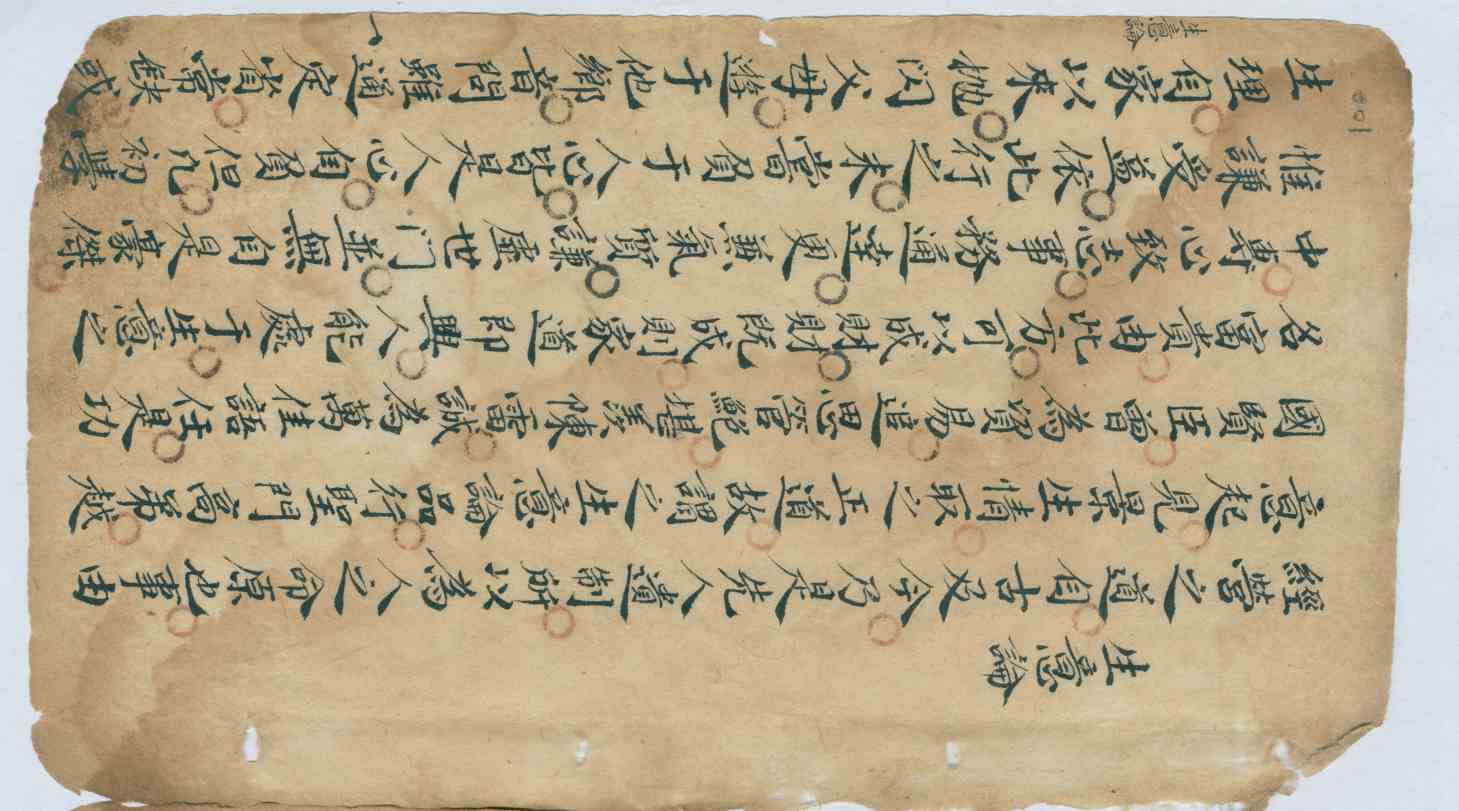 生意論
經營之道自古及今乃是先人遺制所以為人之命原也事由
意起見景生情取之正道故謂之生意論品行聖門高弟越
國賢臣曾為貿易追思管鮑堪羨陳雷誠為萬佳話任是功
名富貴由此方可以成財財既成則家道即興人能處于生意之
中專心致志事務通達更兼氣質謙虛世门並無自是豪傑
惟謙受益依此行之未嘗負于人心皆是人心自負但凡初學
生理自家以来抛闪父母遊于他鄉音問雖通定省常缺或
生意論